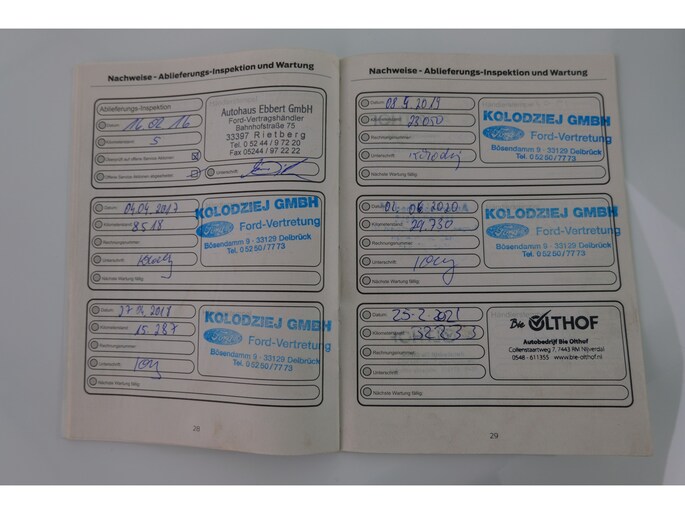 Nachweise - Ablieferungs-Inspektion und Wartung
Ablieferungs-Inspektion
Datum: 16.02.16
Kilometerstand: 5
Überprüft auf offene Service-Aktionen
Offene Service-Aktionen abgearbeitet
Unterschrift
Autohaus Ebbert GmbH
Ford-Vertragshändler
Bahnhofstraße 75
33397 Rietberg
Tel. 0 52 44 / 9 72 20
Fax 05244 / 97 22 22
Datum: 04.04.2017
Kilometerstand: 8518
Rechnungsnummer:
Unterschrift:
Nächste Wartung fällig:
KOLODZIEJ GMBH
Ford Ford-Vertretung
Bösendamm 9 · 33129 Delbrück
Tel. 0 52 50 / 77 73
Datum: 27.04.2018
Kilometerstand: 15.287
Rechnungsnummer:
Unterschrift:
Nächste Wartung fällig:
KOLODZIEJ GMBH
Ford Ford-Vertretung
Bösendamm 9 · 33129 Delbrück
Tel. 0 52 50 / 77 73
28
Nachweise - Ablieferungs-Inspektion und Wartung
Datum:
Kilometerstand: 23.050
Rechnungsnummer:
Unterschrift:
Nächste Wartung fällig:
KOLODZIEJ GMBH
Ford Ford-Vertretung
Bösendamm 9 · 33129 Delbrück
Tel. 0 52 50 / 77 73
Datum:
Kilometerstand: 29.730
Rechnungsnummer:
Unterschrift:
Nächste Wartung fällig:
KOLODZIEJ GMBH
Ford Ford-Vertretung
Bösendamm 9 · 33129 Delbrück
Tel. 0 52 50 / 77 73
Datum: 25-2-2021
Kilometerstand: 32233
Rechnungsnummer:
Unterschrift:
Nächste Wartung fällig:
Bie OLTHOF
Autobedrijf Bie Olthof
Collenstaartweg 7, 7443 RM Nijverdal
0548 - 611355 www.bie-olthof.nl
29